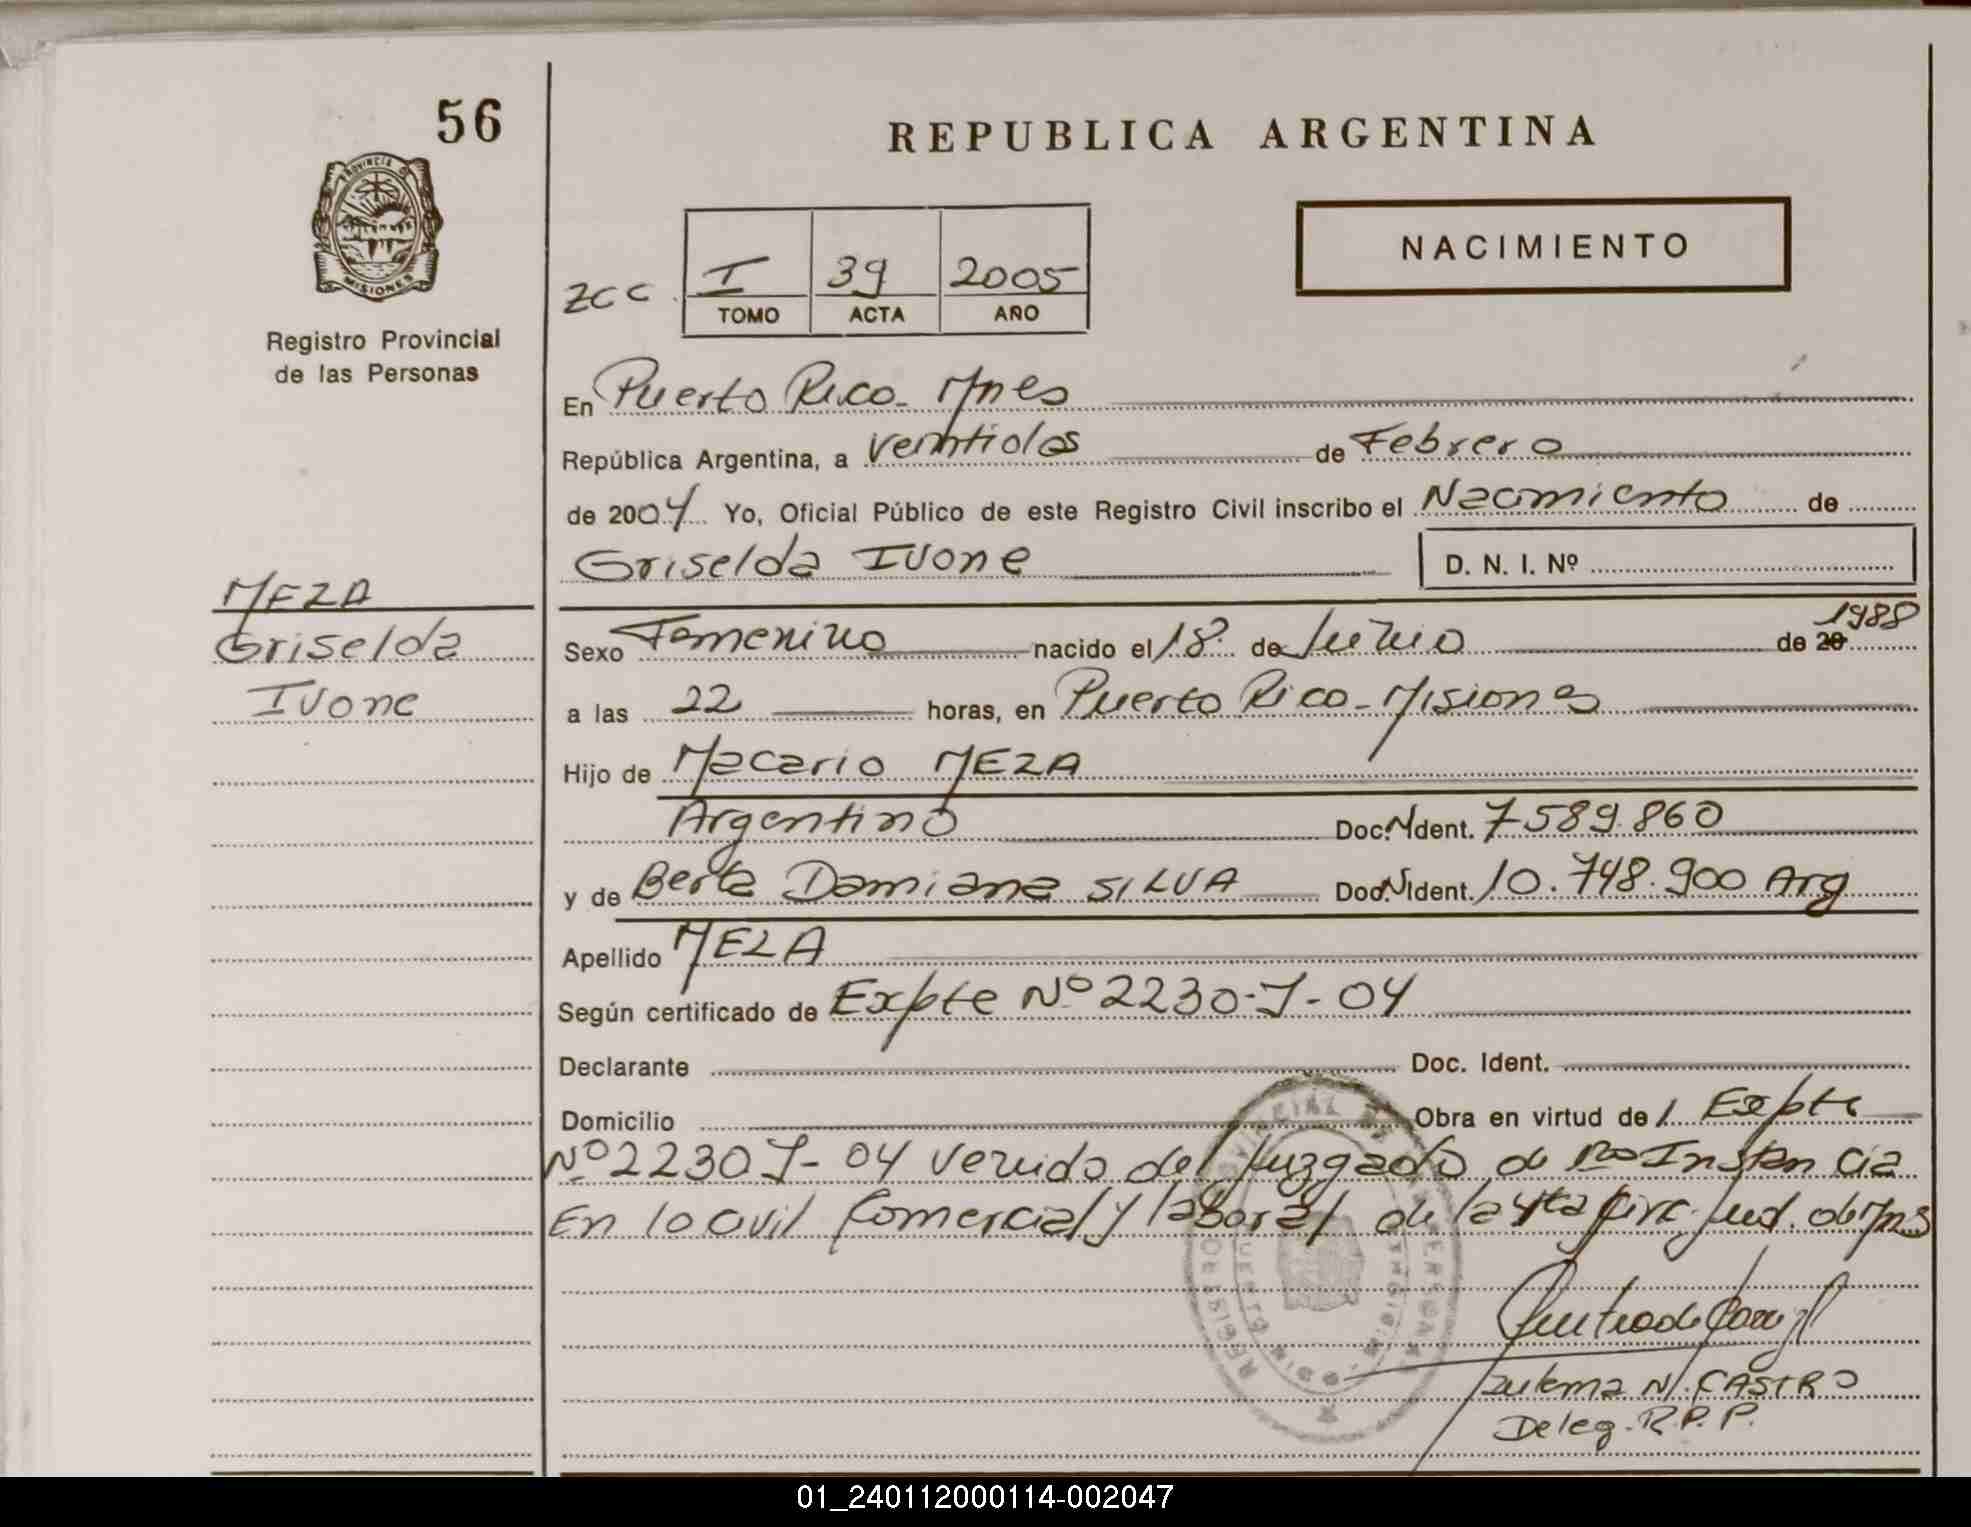 56
REPUBLICA ARGENTINA
PROVINCIA DE
MISIONES
Registro Provincial
de las Personas
NACIMIENTO
zcc I 39 2005
TOMO ACTA AÑO
En Puerto Rico - Mnes
República Argentina, a veintidos de Febrero
de 2004 Yo, Oficial Público de este Registro Civil inscribo el Nacimiento de
Griselda Ivone D. N. I. Nº
MEZA
Griselda
Ivone
Sexo Femenino nacido el 18 de Junio de 20 1988
a las 22 horas, en Puerto Rico - Misiones
Hijo de Macario MEZA
Argentino Doc. N Ident. 7589.860
y de Berta Damiana SILVA Doc. N Ident. 10.748.900 Arg
Apellido MEZA
Según certificado de Expte Nº 2230-J-04
Declarante Doc. Ident.
Domicilio Obra en virtud de Expte
Nº 2230 J-04 venido del Juzgado de 1ra Instancia
En lo Civil Comercial y laboral de la 4ta Circ. Jud. de Mnes
Zulema N. CASTRO
Deleg. R.P.P.
01_240112000114-002047